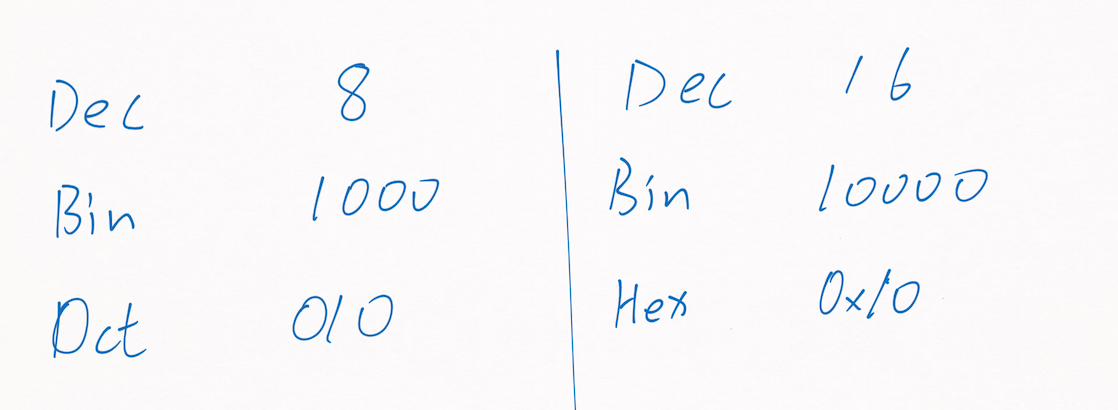 Dec 8
Bin 1000
Oct 010
Dec 16
Bin 10000
Hex 0x10